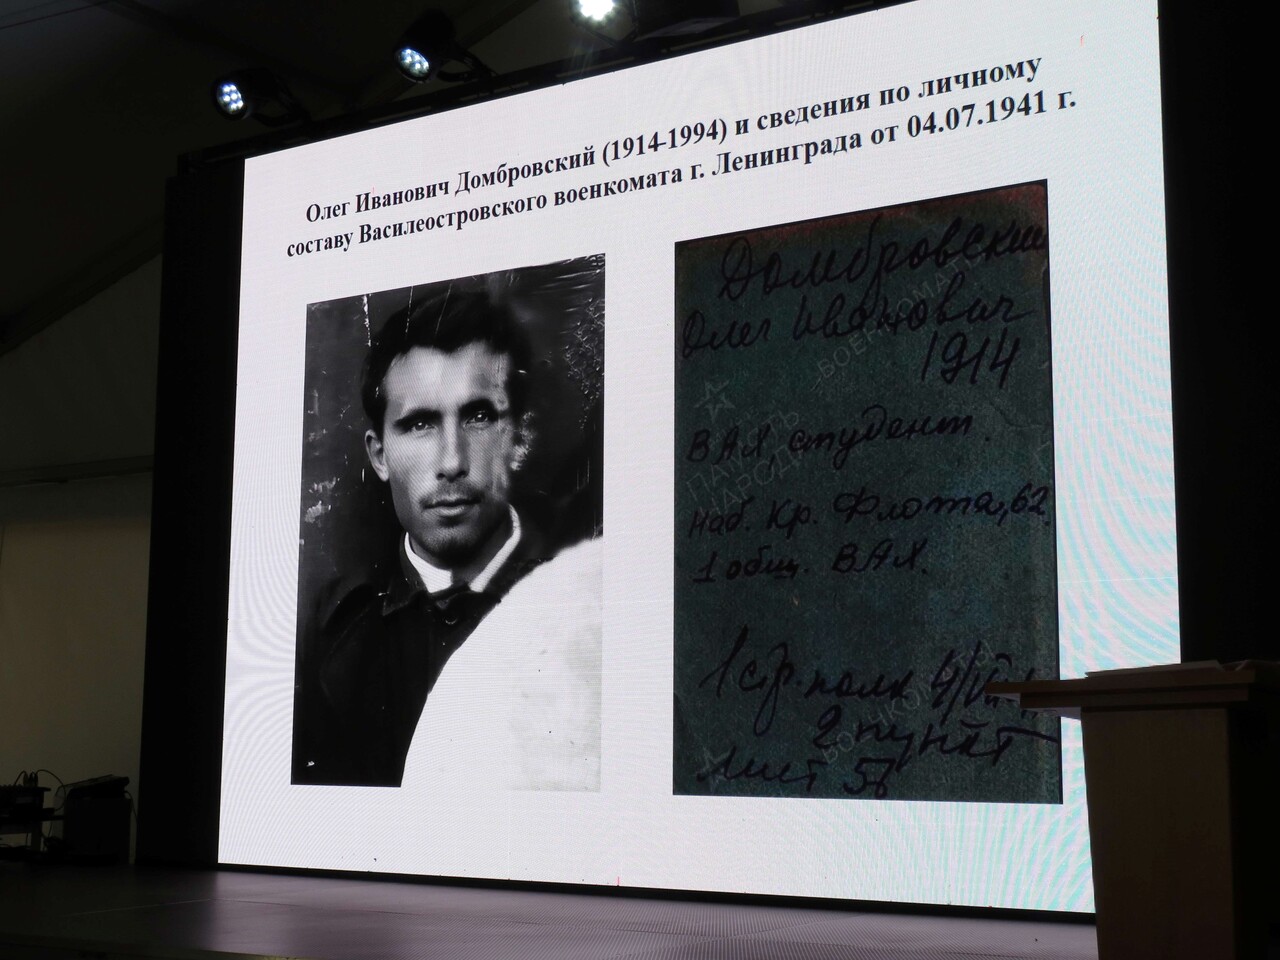 Олег Иванович Домбровский (1914-1994) и сведения по личному
составу Василеостровского военкомата г. Ленинграда от 04.07.1941 г.
Домбровский
Олег Иванович
1914
ВАХ студент.
наб. Кр. Флота, 62.
1 общ. ВАХ.
1 стр. полк 4/VII
2 пункт
Лист 56
ПАМЯТЬ
НАРОДА
ВОЕНКОМАТЫ
ВОЕНКОМАТЫ